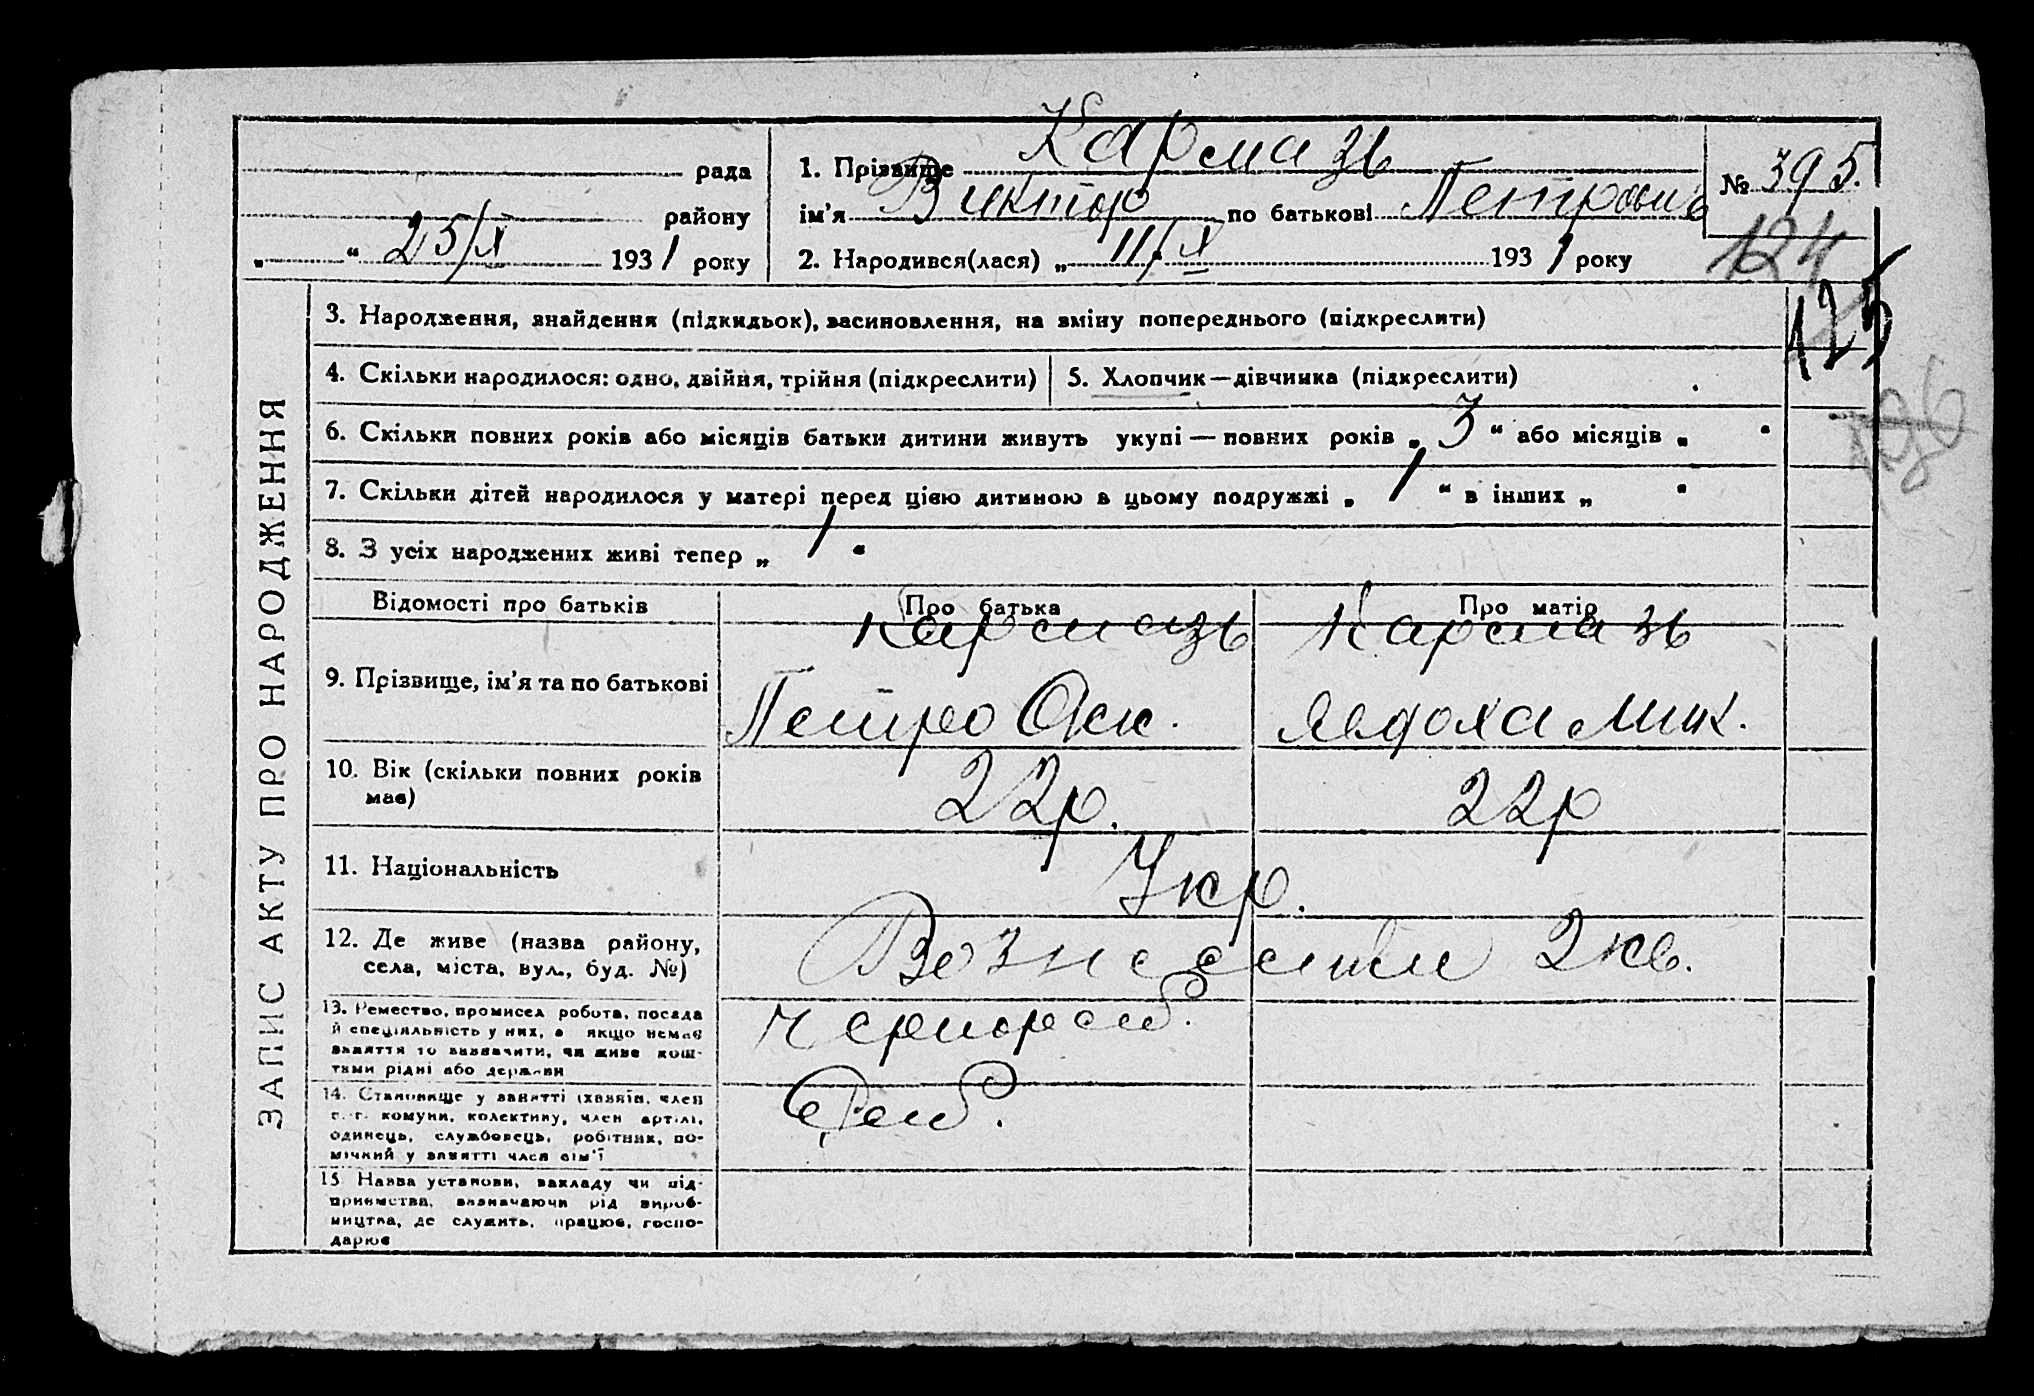 рада
району
25/X 1931 року
1. Прізвище Кармазь
ім'я Виктор по батькові Петрович
2. Народився(лася) „11/X 1931 року
№ 395.
124
125
ЗАПИС АКТУ ПРО НАРОДЖЕННЯ
3. Народження, знайдення (підкидьок), васиновлення, на зміну попереднього (підкреслити)
4. Скільки народилося: одно, двійня, трійня (підкреслити)
5. Хлопчик—дівчинка (підкреслити)
6. Скільки повних років або місяців батьки дитини живуть укупі — повних років „ 3 “ або місяців „ “
7. Скільки дітей народилося у матері перед цією дитиною в цьому подружжі „ 1 “ в інших „ “
8. З усіх народжених живі тепер „ 1 “
Відомості про батьків
Про батька
Про матір
9. Прізвище, ім'я та по батькові
Кармазь
Петро
Кармазь
Явдоха Мик.
10. Вік (скільки повних років
має)
22р.
22р
11. Національність
Укр.
12. Де живе (назва району,
села, міста, вул., буд. №)
2 кв.
13. Ремество, промисел робота, посада
й спеціяльність у них, а якщо немає
заняття то зазначити, чи живе кош-
тами рідні або держави
Чернороб.
14. Становище у занятті (хазяїн, член
с.-г. комуни, колективу, член артілі,
одинець, службовець, робітник, по-
мічний у занятті член сім'ї
15 Назва установи, закладу чи під-
приємства, зазначаючи рід вироб-
ництва, де служить, працює, госпо-
дарює